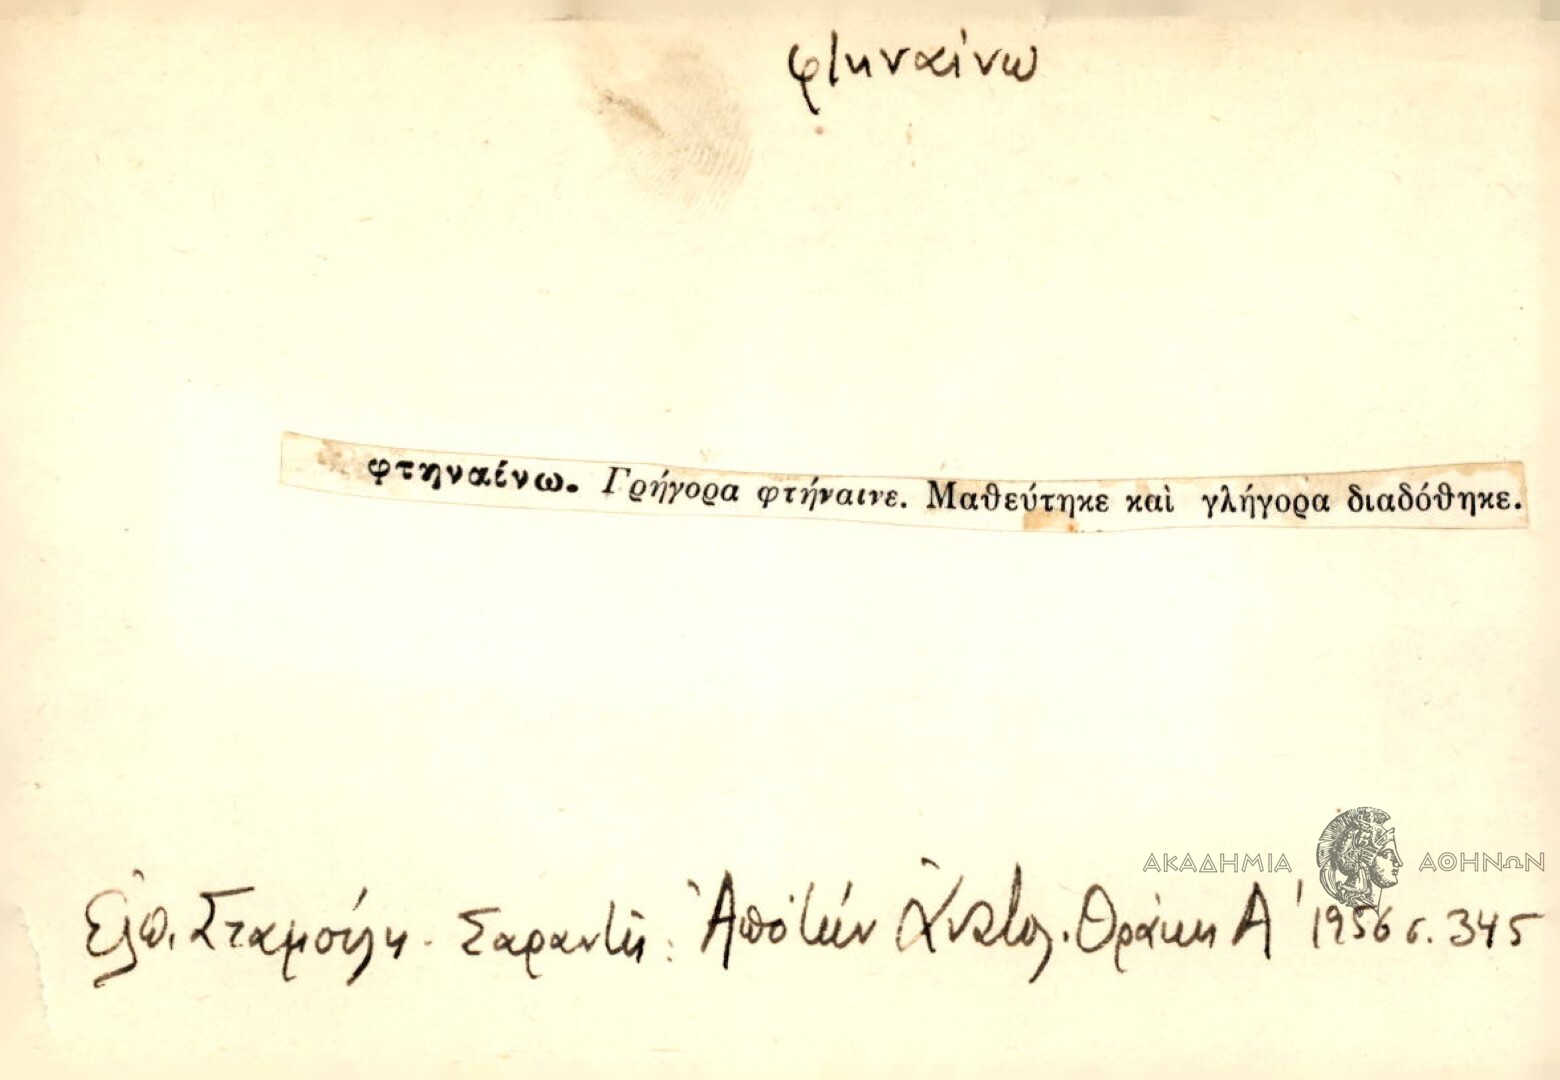 φτηναίνω
φτηναίνω. Γρήγορα φτήναινε. Μαθεύτηκε καὶ γλήγορα διαδόθηκε.
ΑΚΑΔΗΜΙΑ ΑΘΗΝΩΝ
Ἐλπ. Σταμούλη - Σαραντῆ : Ἀπὸ τὴν Ἀνατολ. Θράκη Α' 1956 σ. 345